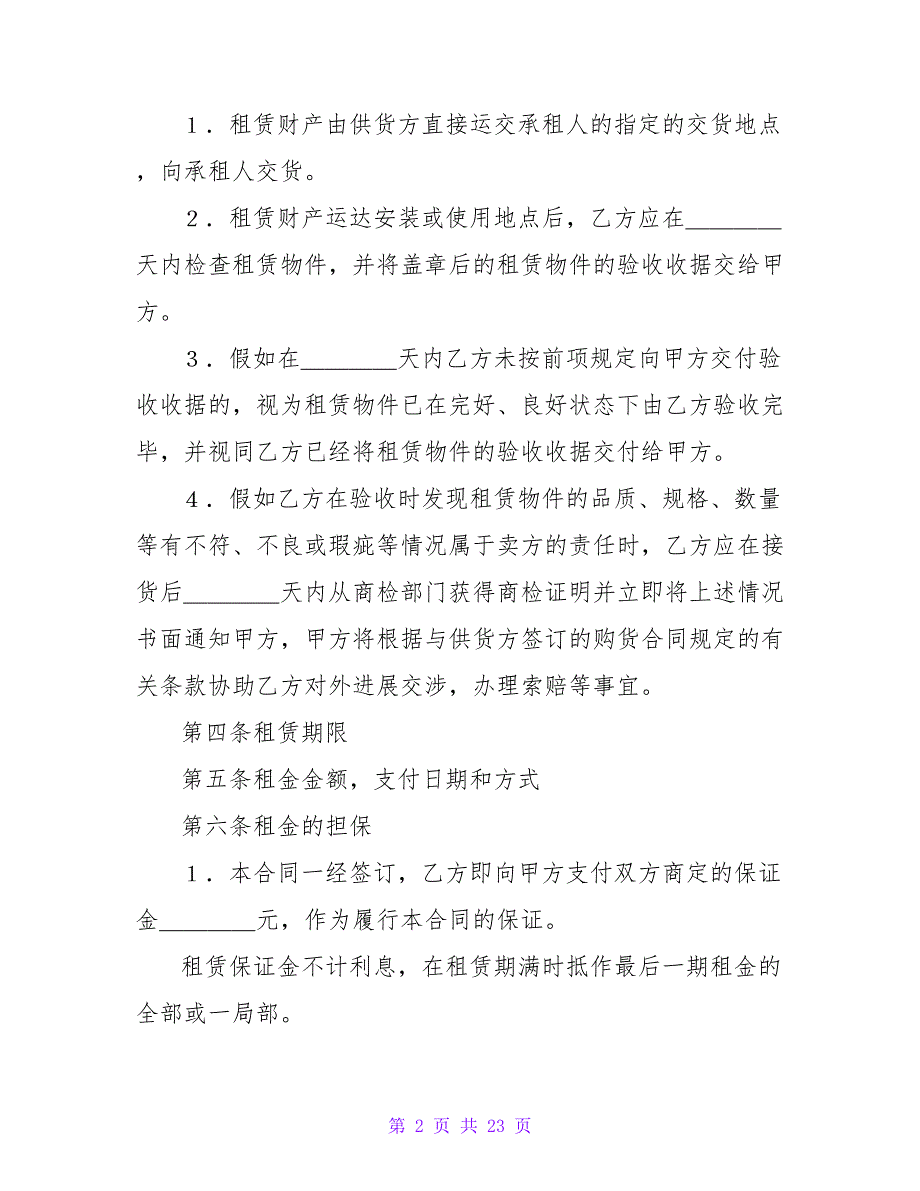 １．租赁财产由供货方直接运交承租人的指定的交货地点
，向承租人交货。
２．租赁财产运达安装或使用地点后，乙方应在________
天内检查租赁物件，并将盖章后的租赁物件的验收收据交给甲
方。
３．假如在________天内乙方未按前项规定向甲方交付验
收收据的，视为租赁物件已在完好、良好状态下由乙方验收完
毕，并视同乙方已经将租赁物件的验收收据交付给甲方。
４．假如乙方在验收时发现租赁物件的品质、规格、数量
等有不符、不良或瑕疵等情况属于卖方的责任时，乙方应在接
货后________天内从商检部门获得商检证明并立即将上述情况
书面通知甲方，甲方将根据与供货方签订的购货合同规定的有
关条款协助乙方对外进展交涉，办理索赔等事宜。
第四条租赁期限
第五条租金金额，支付日期和方式
第六条租金的担保
１．本合同一经签订，乙方即向甲方支付双方商定的保证
金________元，作为履行本合同的保证。
租赁保证金不计利息，在租赁期满时抵作最后一期租金的
全部或一局部。
第 2 页 共 23 页